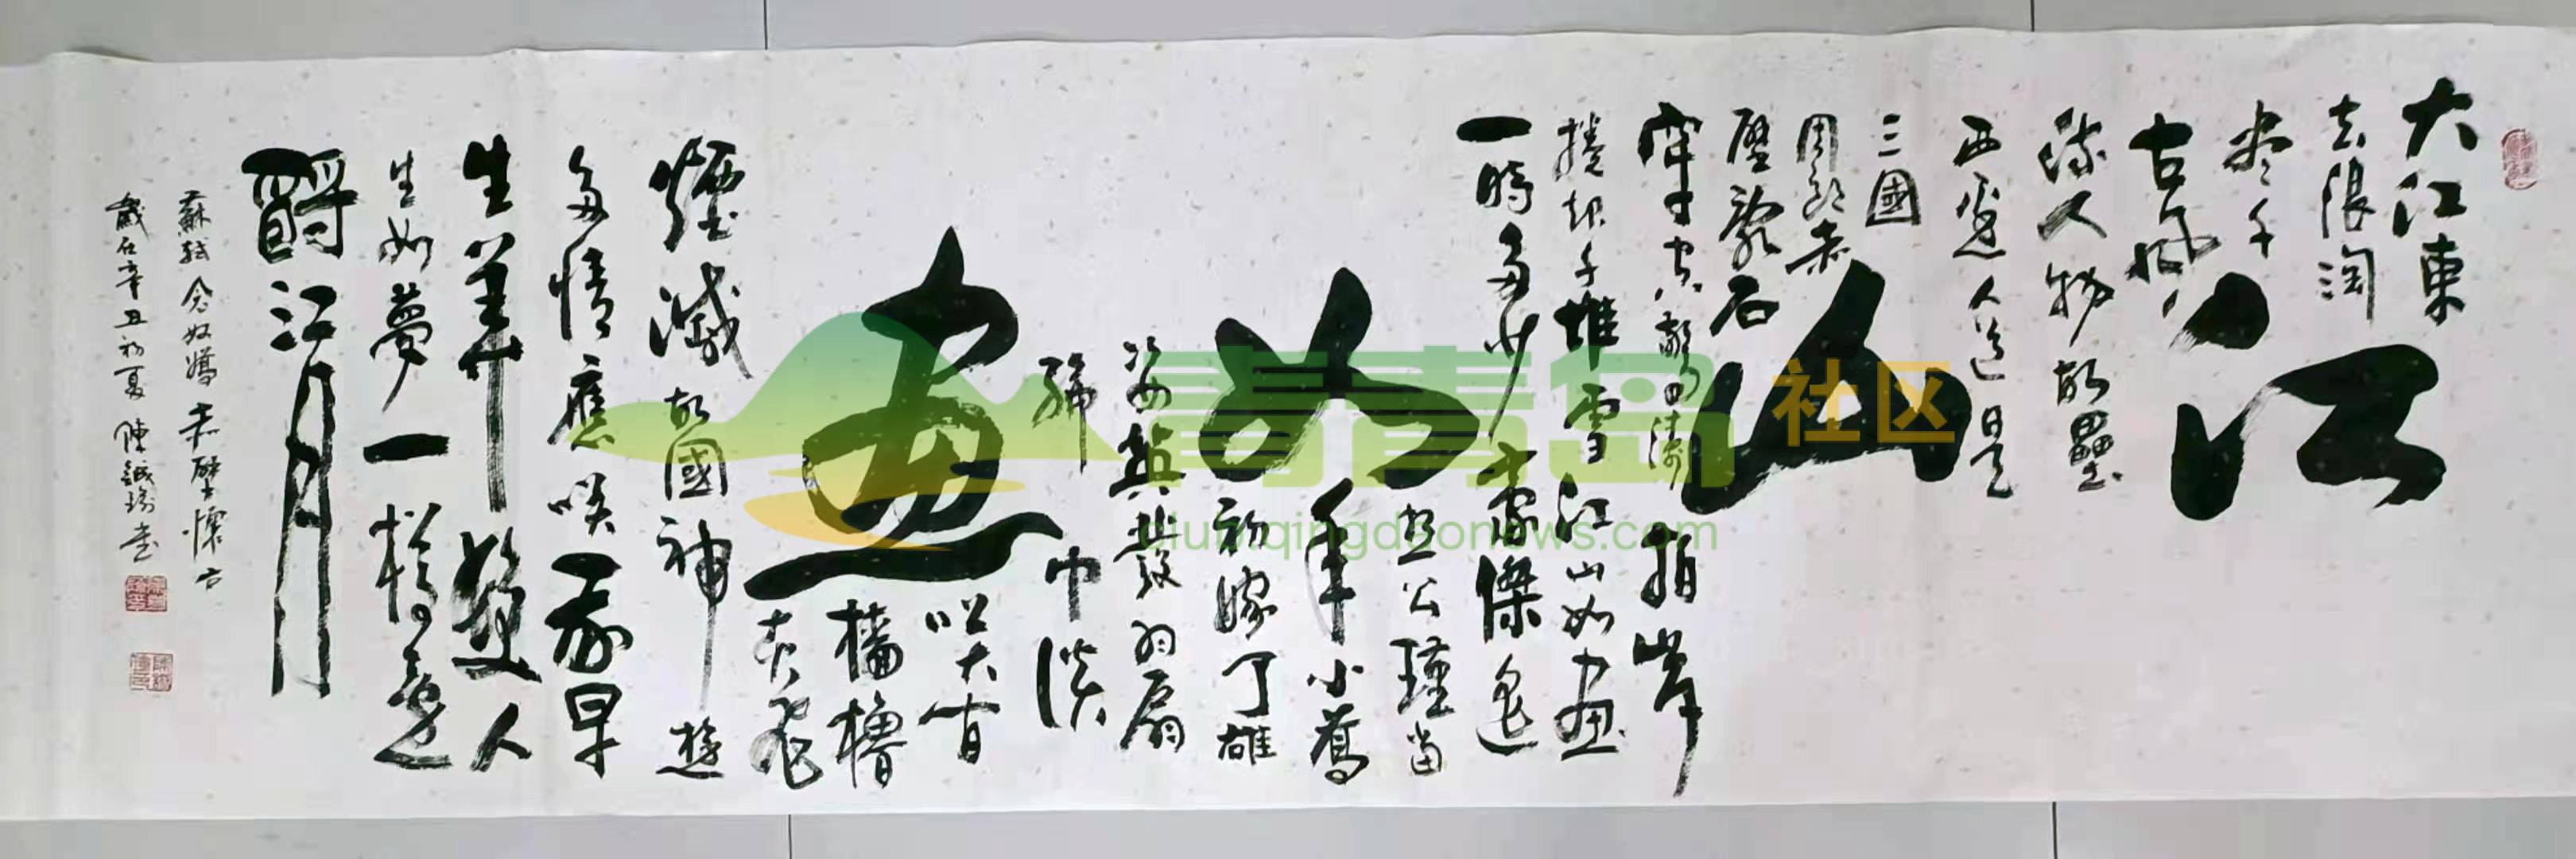 大江東
去浪淘
盡千
古風
流人物故壘
西邊人道是
三國
周郎赤
壁亂石
穿空驚濤拍岸
捲起千堆雪江山如畫
一時多少豪傑遙
想公瑾當
年小喬
初嫁了雄
姿英發羽扇
綸巾談
笑間
檣櫓
灰飛
煙滅故國神遊
多情應笑我早
生華髮人
生如夢一樽還
酹江月
蘇軾念奴嬌赤壁懷古
歲在辛丑初夏陳
書
江山如畫
青青岛社区
club.qingdaonews.com